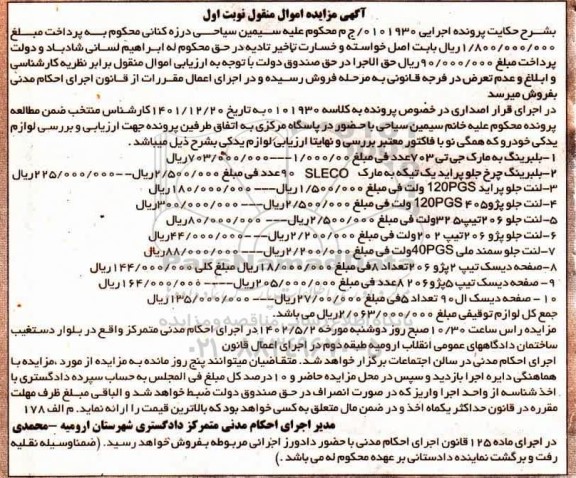 آگهی مزایده اموال منقول نوبت اول
بشرح حکایت پرونده اجرایی ۰۱۰۱۹۳۰/ج م محکوم علیه سیمین سیاحی درزه کنانی محکوم به پرداخت مبلغ
۱/۸۰۰/۰۰۰/۰۰۰ ریال بابت اصل خواسته و خسارت تاخیر تادیه در حق محکوم له ابراهیم لسانی شادباد و دولت
پرداخت مبلغ ۹۰/۰۰۰/۰۰۰ ریال حق الاجرا در حق صندوق دولت با توجه به ارزیابی اموال منقول برابر نظریه کارشناسی
و ابلاغ و عدم تعرض در فرجه قانونی به مرحله فروش رسیده و در اجرای اعمال مقررات از قانون اجرای احکام مدنی
بفروش میرسد
در اجرای قرار اصداری در خصوص پرونده به کلاسه ۰۱۰۱۹۳۰ به تاریخ ۱۴۰۱/۱۲/۲۰ کارشناس منتخب ضمن مطالعه
پرونده محکوم علیه خانم سیمین سیاحی با حضور در پاسگاه مرکزی به اتفاق طرفین پرونده جهت ارزیابی و بررسی لوازم
یدکی خودرو که همگی نو با فاکتور معتبر بررسی و نهایتا ارزیابی لوازم یدکی بشرح ذیل میباشد.
۱-بلبرینگ به مارک جی تی ۷۰۳ عدد فی مبلغ ۱/۰۰۰/۰۰۰---۷۰۳/۰۰۰/۰۰۰ ریال
۲-بلبرینگ چرخ جلو پراید یک تیکه به مارک SLECO ۹۰ عدد فی مبلغ ۲/۵۰۰/۰۰۰ ریال---۲۲۵/۰۰۰/۰۰۰ ریال
۳-لنت جلو پراید 120PGS ولت فی مبلغ ۱/۵۰۰/۰۰۰ ریال---۱۸۰/۰۰۰/۰۰۰ ریال
۴-لنت جلو پژو ۴۰۵ 120PGS ولت فی مبلغ ۲/۵۰۰/۰۰۰ ریال---۳۰۰/۰۰۰/۰۰۰ ریال
۵-لنت جلو ۲۰۶ تیپ ۵ ۳۲ ولت فی مبلغ ۲/۵۰۰/۰۰۰ ریال---۸۰/۰۰۰/۰۰۰ ریال
۶-لنت جلو پژو ۲۰۶ تیپ ۲ ۲۰ ولت فی مبلغ ۲/۲۰۰/۰۰۰ ریال---۴۴/۰۰۰/۰۰۰ ریال
۷-لنت جلو سمند ملی 40PGS ولت فی مبلغ ۲/۲۰۰/۰۰۰ ریال---۸۸/۰۰۰/۰۰۰ ریال
۸-صفحه دیسک تیپ ۲ پژو ۲۰۶ تعداد ۸ فی مبلغ ۱۸/۰۰۰/۰۰۰ ریال مبلغ کلی ۱۴۴/۰۰۰/۰۰۰ ریال
۹-صفحه دیسک تیپ ۵ پژو ۲۰۶ ۸ عدد فی مبلغ ۲۰۵/۰۰۰/۰۰۰ ریال---۱۶۴/۰۰۰/۰۰۰ ریال
۱۰-صفحه دیسک ال ۹۰ تعداد ۵ فی مبلغ ۲۷/۰۰۰/۰۰۰ ریال---۱۳۵/۰۰۰/۰۰۰ ریال
جمع کل لوازم توقیفی مبلغ ۲/۰۶۳/۰۰۰/۰۰۰ ریال می باشد.
مزایده راس ساعت ۱۰/۳۰ صبح روز دوشنبه مورخه ۱۴۰۲/۵/۲ در اجرای احکام مدنی متمرکز واقع در بلوار دستغیب
ساختمان دادگاههای عمومی انقلاب ارومیه طبقه دوم در اجرای اعمال قانون
اجرای احکام مدنی در سالن اجتماعات برگزار خواهد شد. متقاضیان میتوانند پنج روز مانده به مزایده از مورد مزایده با
هماهنگی دایره اجرا بازدید و سپس در محل مزایده حاضر و ۱۰ درصد کل مبلغ فی المجلس به حساب سپرده دادگستری با
اخذ شناسه از واحد اجرا واریز که در صورت انصراف در حق صندوق دولت ضبط خواهد شد و الباقی مبلغ ظرف مهلت
مقرره در قانون حداکثر یکماه اخذ و در ضمن مال متعلق به کسی خواهد بود که بالاترین قیمت را ارائه نماید. م الف ۱۷۸
مدیر اجرای احکام مدنی متمرکز دادگستری شهرستان ارومیه -محمدی
در اجرای ماده ۱۲۵ قانون اجرای احکام مدنی با حضور دادورز اجرائی مربوطه بفروش خواهد رسید. (ضمنا وسیله نقلیه
رفت و برگشت نماینده دادستانی بر عهده محکوم له می باشد.)